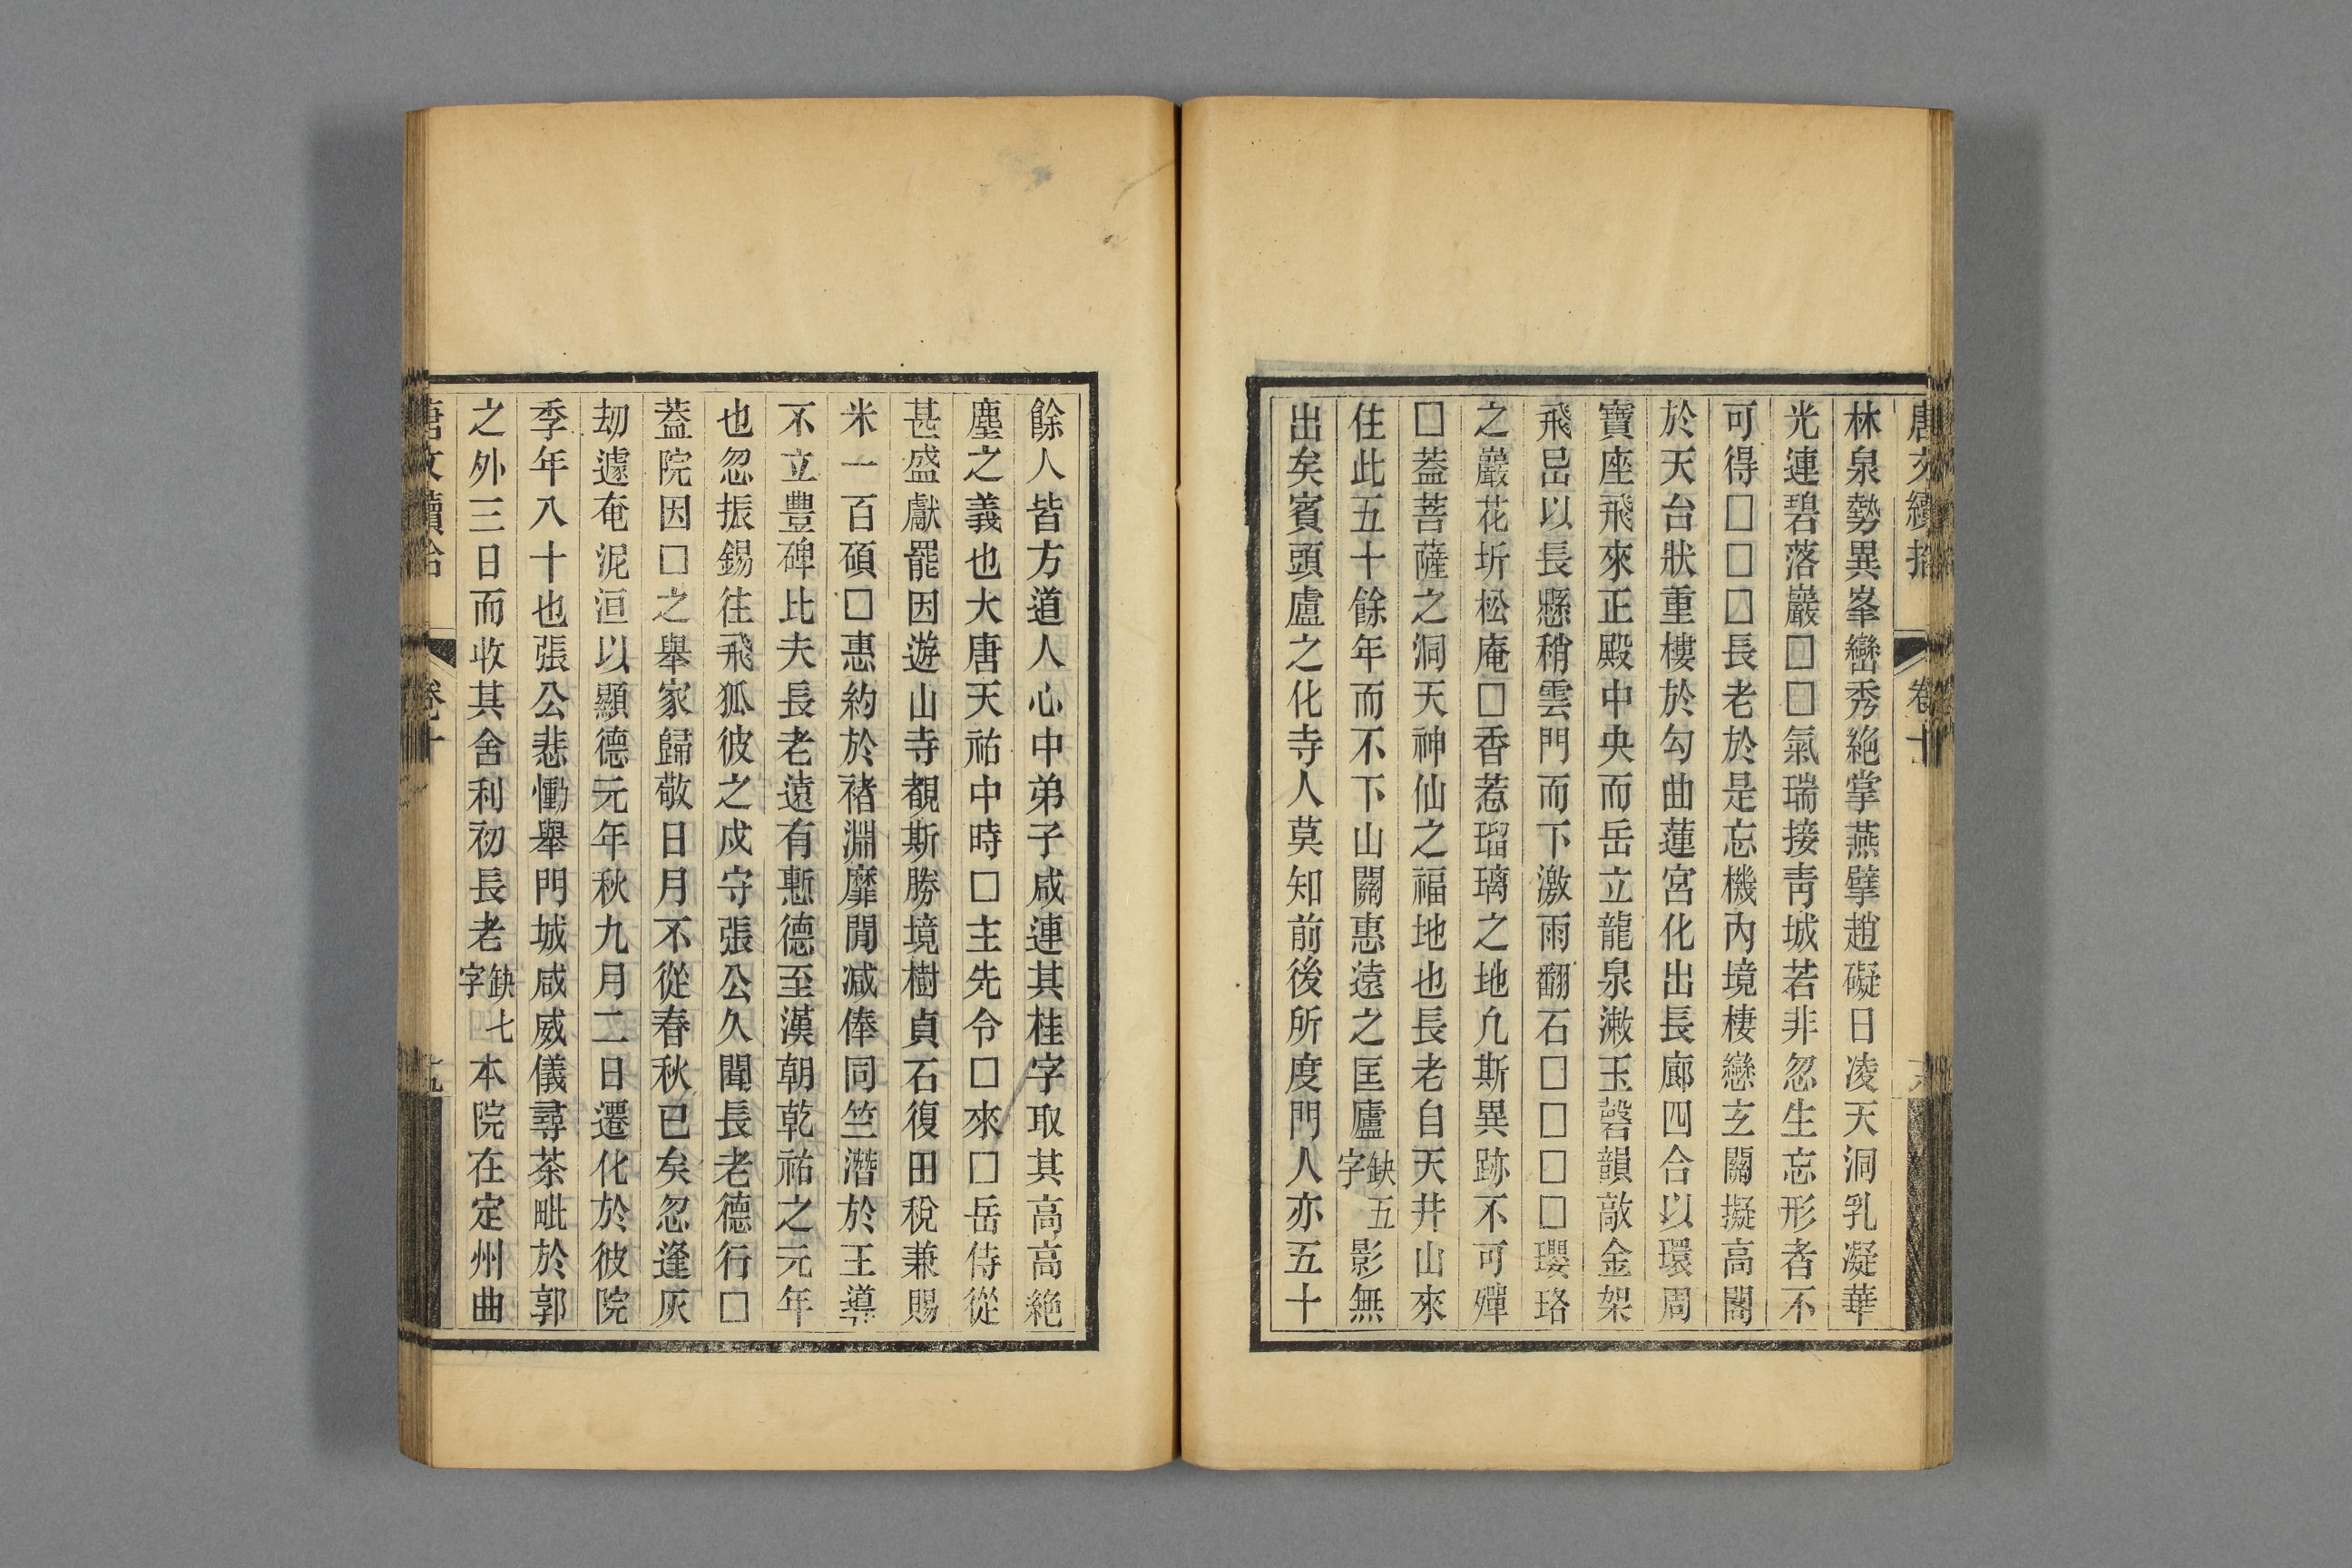 林泉勢異峯巒秀絶掌燕擘趙礙日凌天洞乳凝華
光連碧落巖□□氣瑞接靑城若非忽生忘形者不
可得□□□長老於是忘機內境棲戀玄關擬高閣
於天台狀重樓於勾曲蓮宮化出長廊四合以環周
寶座飛來正殿中央而岳立龍泉潄玉磬韻敲金架
飛昂以長懸稍雲門而下激雨翻石□□□□瓔珞
之巖花坼松庵□香惹瑠璃之地凢斯異跡不可殫
□葢菩薩之洞天神仙之福地也長老自天井山來
住此五十餘年而不下山關惠遠之匡廬缺五字影無
出矣賓頭盧之化寺人莫知前後所度門人亦五十
餘人皆方道人心中弟子咸連其桂字取其高高絶
塵之義也大唐天祐中時□主先令□來□岳侍從
甚盛獻罷因遊山寺覩斯勝境樹貞石復田稅兼賜
米一百碩□惠約於褚淵靡閒减俸同竺潛於王導
不立豐碑比夫長老遠有慙德至漢朝乾祐之元年
也忽振錫往飛狐彼之戍守張公久聞長老德行□
葢院因□之舉家歸敬日月不從春秋已矣忽逢灰
刼遽奄泥洹以顯德元年秋九月二日遷化於彼院
季年八十也張公悲慟舉門城咸威儀尋茶毗於郭
之外三日而收其舍利初長老缺七字本院在定州曲